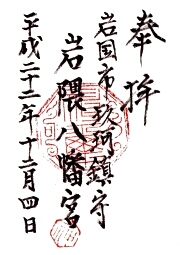 奉拝
岩国市玖珂鎮守
岩隈八幡宮
平成二十二年十二月四日